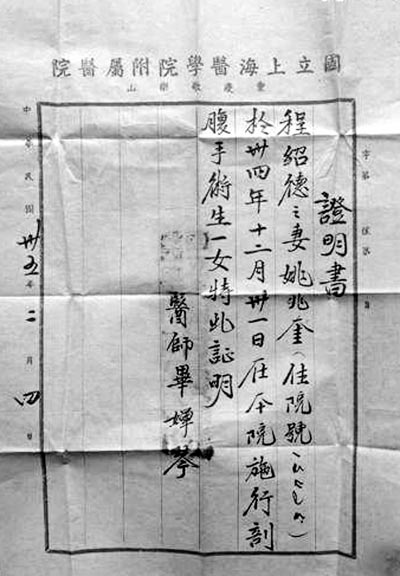 國立上海醫學院附屬醫院
重慶歌樂山
字第
證明書
程紹德之妻姚兆奎(住院號
於卅四年十二月卅一日在本院施行剖
腹手術生一女特此証明
醫師畢嬋琴
中華民國卅五年二月四日